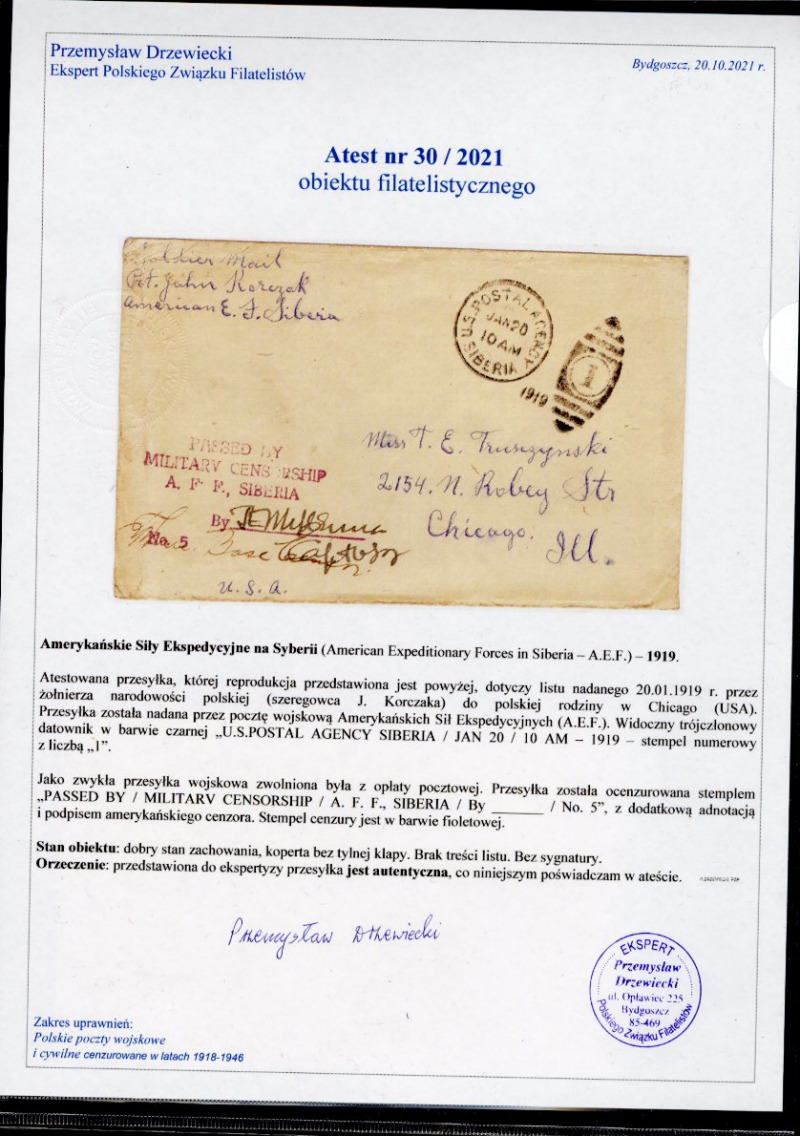 Przemysław Drzewiecki
Ekspert Polskiego Związku Filatelistów
Bydgoszcz, 20.10.2021 r.
Atest nr 30 / 2021
obiektu filatelistycznego
Mail
Pvt. John Korczak
American E. F. Siberia
U.S. POSTAL AGENCY
JAN 20
10 AM
SIBERIA
1919
1
PASSED BY
MILITARV CENSORSHIP
A. F. F., SIBERIA
By
No. 5
Base
U. S. A.
Miss T. E. Truszynski
2154. N. Robey Str
Chicago.
Ill.
Amerykańskie Siły Ekspedycyjne na Syberii (American Expeditionary Forces in Siberia – A.E.F.) – 1919.
Atestowana przesyłka, której reprodukcja przedstawiona jest powyżej, dotyczy listu nadanego 20.01.1919 r. przez
żołnierza narodowości polskiej (szeregowca J. Korczaka) do polskiej rodziny w Chicago (USA).
Przesyłka została nadana przez pocztę wojskową Amerykańskich Sił Ekspedycyjnych (A.E.F.). Widoczny trójczłonowy
datownik w barwie czarnej „U.S.POSTAL AGENCY SIBERIA / JAN 20 / 10 AM – 1919 – stempel numerowy
z liczbą „1”.
Jako zwykła przesyłka wojskowa zwolniona była z opłaty pocztowej. Przesyłka została ocenzurowana stemplem
„PASSED BY / MILITARV CENSORSHIP / A. F. F., SIBERIA / By _______ / No. 5”, z dodatkową adnotacją
i podpisem amerykańskiego cenzora. Stempel cenzury jest w barwie fioletowej.
Stan obiektu: dobry stan zachowania, koperta bez tylnej klapy. Brak treści listu. Bez sygnatury.
Orzeczenie: przedstawiona do ekspertyzy przesyłka jest autentyczna, co niniejszym poświadczam w ateście.
Przemysław Drzewiecki
EKSPERT
Przemysław
Drzewiecki
ul. Opławiec 225
Bydgoszcz
85-469
Polskiego Związku Filatelistów
Zakres uprawnień:
Polskie poczty wojskowe
i cywilne cenzurowane w latach 1918-1946